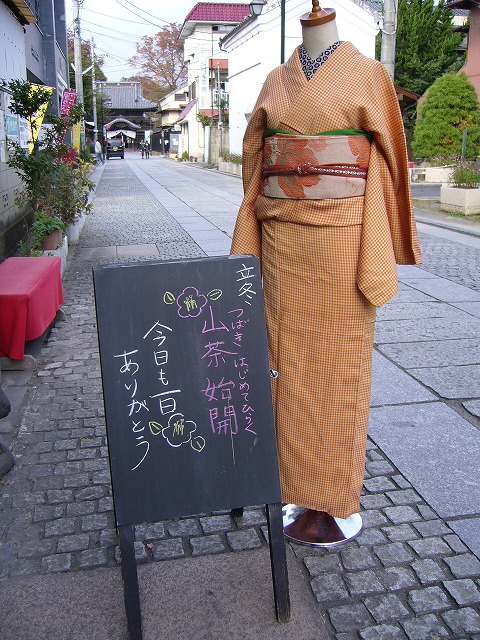 立冬、
つばき はじめてひらく
山茶始開
今日も一日
ありがとう